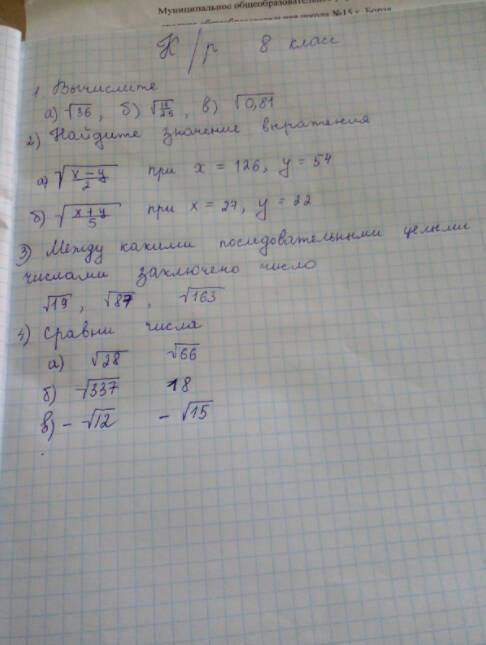 Муниципальное общеобразовательное
К/р 8 класс
1 Вычислите
а) √36, б) √16/25, в) √0,81
2) Найдите значение выражения
а) √(x-y)/2 при x = 126, y = 54
б) √(x+y)/5 при x = 27, y = 22
3) Между какими последовательными целыми
числами заключено число
√19, √87, √163
4) Сравни числа
а) √28 √66
б) √337 18
в) -√12 -√15